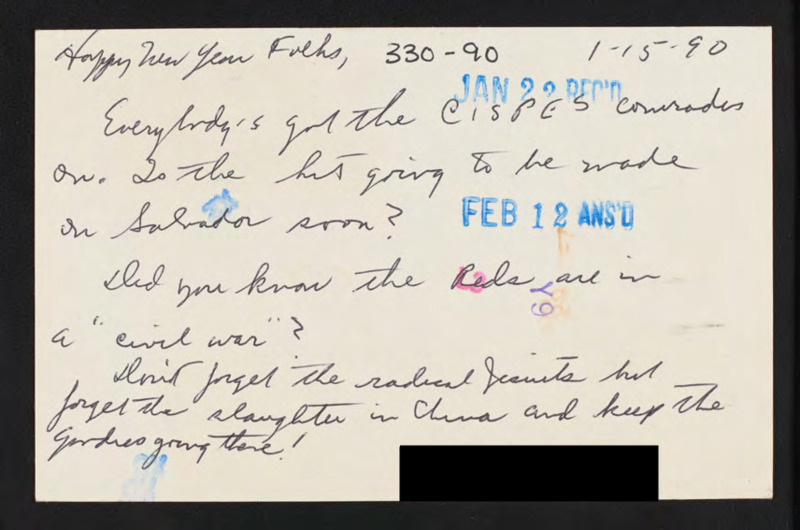 Happy New Year Folks, 330-90 1-15-90
JAN 22 REC'D
Everybody's got the CISPES comrades
on. Is the hit going to be made
on Salvador soon?
FEB 12 ANS'D
Did you know the Reds are in
a "civil war"?
Don't forget the radical Jesuits but
forget the slaughter in China and keep the
going there!